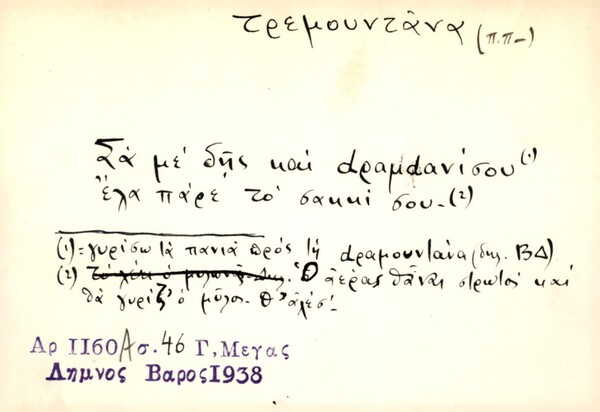 τρεμουντάνα (π.π-)
Σὰ μὲ δῇς καὶ dραμdανίσου (1)
ἔλα πάρε τὸ σακκί σου - (2)
(1) = γυρίσω τὰ πανιὰ πρὸς τὴ dραμουντάνα (δηλ. ΒΔ)
(2) Ὁ ἀέρας θἆναι στρωτὸς καὶ
θὰ γυρίζ' ὁ μύλος. Θ' ἀλέσ'.
Αρ 1160 Α σ. 46 Γ, Μεγας
Λημνος Βαρος 1938